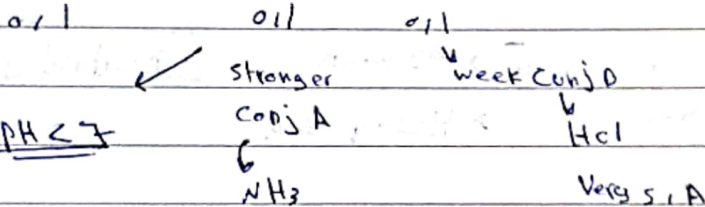 0,1 0,1 0,1
stronger week Conj B
pH < 7 Conj A Hcl
NH3 Very S, A